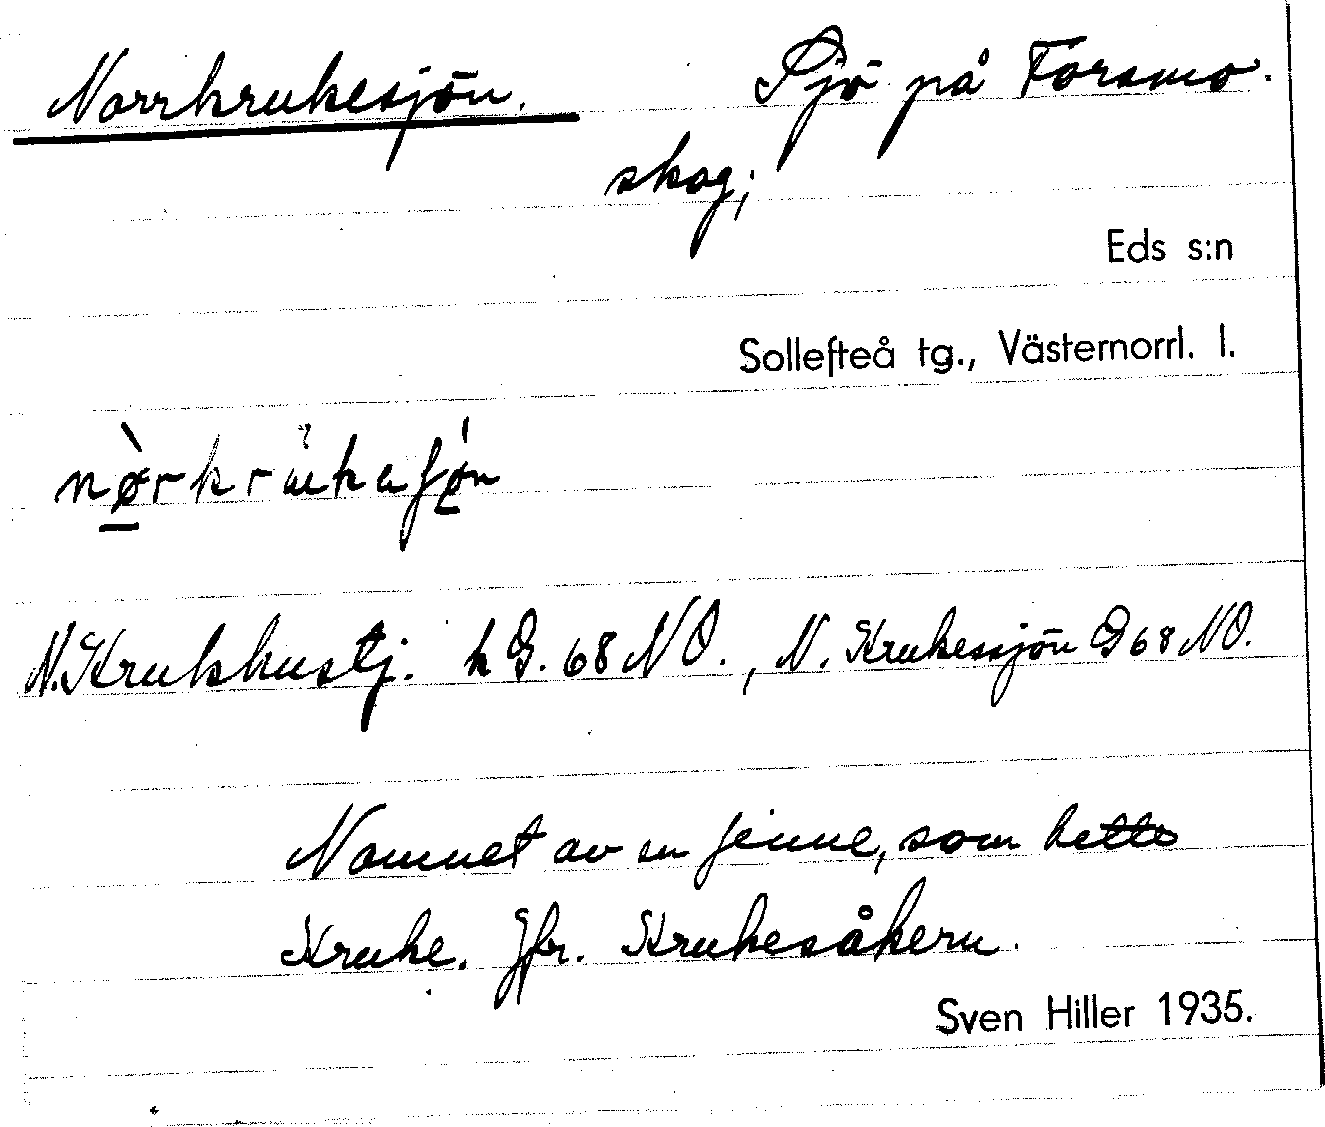 Norrkrukesjön. Sjö på Forsmo
skog;
Eds s:n
Sollefteå tg., Västernorrl. l.
N. Krukhustj. h G. 68 NO., N. Krukessjön G 68 NO.
Namnet av en finne, som hette
Kruke. Jfr. Krukesåkern.
Sven Hiller 1935.